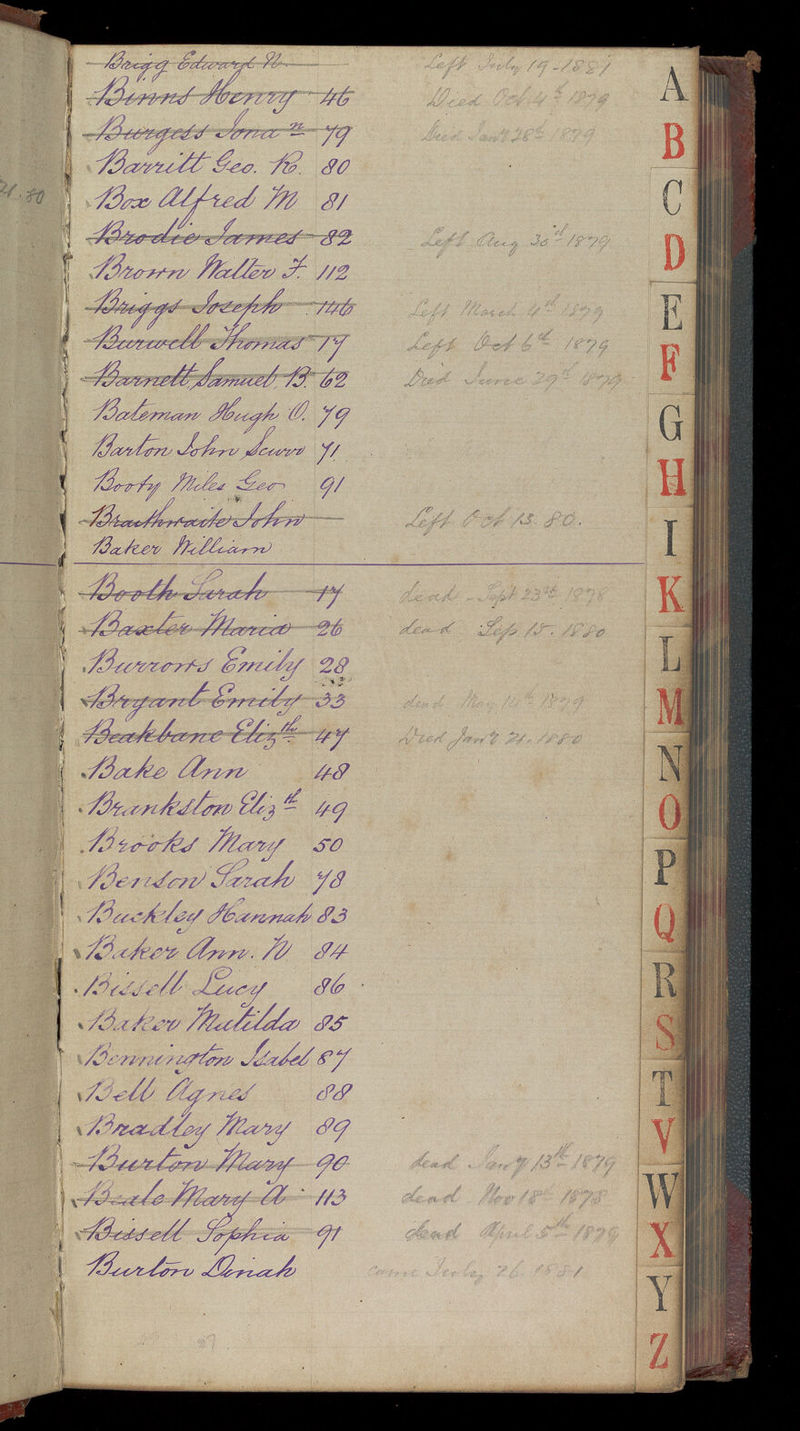 21.80
Brigg Edward N. Left July 19-1881
Binns Henry 46 Died Oct 4th 1879
Burgess Jona n 79 Died Jany 28th 1879
Barritt Geo. R. 80
Box Alfred M 81
Brodie James 82 Left Aug 30th 1879
Brown Walter F. 112
Briggs Joseph 146 Left March 4th 1879
Burwell Thomas 17 Left Oct 6th 1879
Barnett Samuel B. 62 Died June 29th 1879
Bateman Hugh O. 79
Barton John 71
Booty Miles Geo 91
Braithwaite John Left Oct 13. 80.
Baker William
Booth Sarah 17 dead - Sept 23rd 1878
Baxter Maria 26 dead Sep 15. 1880
Burrows Emily 28
Bryant Emily 33 dead May 1879
Beakbane Elizth 47 Died Jany 21. 1880
Bake Ann 48
Brankston Elizth 49
Brooks Mary 50
Benson Sarah 78
Buckley Hannah 83
Baker Ann. N 84
Bissell Lucy 86
Baker Matilda 85
Bennington Isabel 87
Bell Agnes 88
Bradley Mary 89
Burton Mary 90 dead Jany 13th 1879
Beale Mary A 113 dead Nov 18th 1878
Bissell Sophia 91 dead April 5th 1879
Burton Dinah came July 26. 1881
87
A
B
C
D
E
F
G
H
I
K
L
M
N
O
P
Q
R
S
T
V
W
X
Y
Z